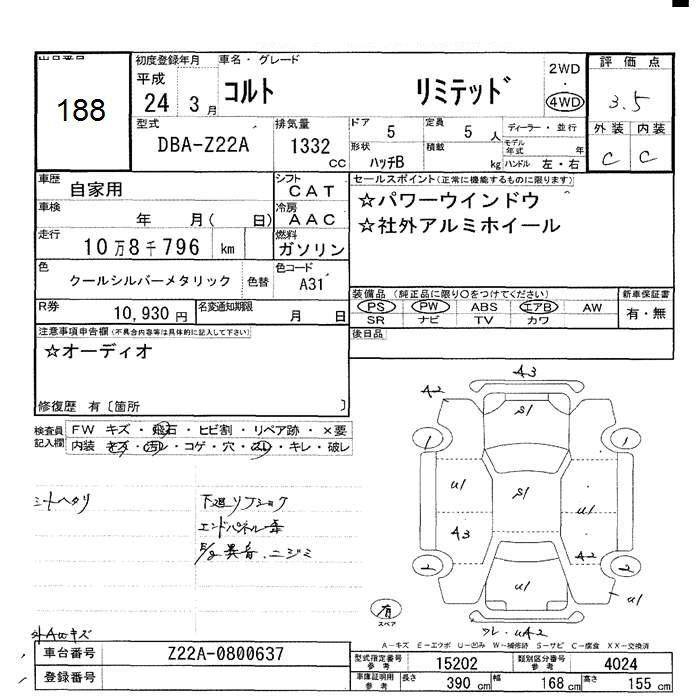 188
初度登録年月 車名・グレード
平成 24 3月 コルト リミテッド
2WD ・ 4WD
評価点
3.5
型式 DBA-Z22A 排気量 1332 CC
ドア 5 定員 5 人 ディーラー・並行
形状 ハッチB 積載 kg モデル年式 年
ハンドル 左・右
外装 内装
C C
車歴 自家用 シフト CAT
車検 年 月( 日) 冷房 AAC
走行 10万8千796 km 燃料 ガソリン
色 クールシルバーメタリック 色替 色コード A31
R券 10,930円 名変通知期限 月 日
セールスポイント(正常に機能するものに限ります)
☆パワーウインドウ
☆社外アルミホイール
装備品 (純正品に限り○をつけてください) 新車保証書
PS PW ABS エアB AW 有・無
SR ナビ TV カワ
後日品
注意事項申告欄(不具合内容等は具体的に記入して下さい)
☆オーディオ
修復歴 有〔箇所 〕
検査員記入欄
FW キズ・飛石・ヒビ割・リペア跡・×要
内装 キズ・汚レ・コゲ・穴・スレ・キレ・破レ
シートヘタリ
下廻リフショク
エンドパネル
異音.ニジミ
A3
A2
S1
1 1
U1 S1 U1
A3 A2
2 2
U1 U1
有
スペア
A-キズ E-エクボ U-凹み W-補修跡 S-サビ C-腐食 XX-交換済
車台番号 Z22A-0800637
登録番号
型式指定番号 参考 15202 類別区分番号 参考 4024
車庫証明用 参考 長さ 390 cm 幅 168 cm 高さ 155 cm